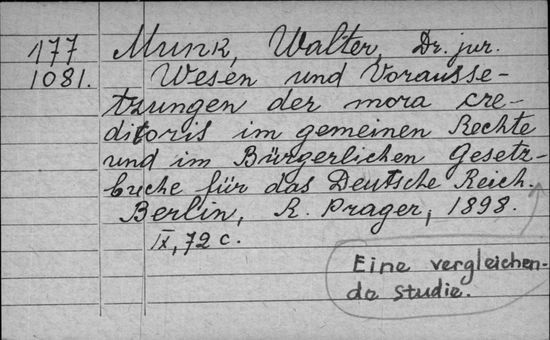 177
1081.
Munk, Walter, Dr. jur.
Wesen und Vorausse-
tzungen der mora cre-
ditoris im gemeinen Rechte
und im Bürgerlichen Gesetz-
buche für das Deutsche Reich.
Berlin, R. Prager, 1898.
IX, 72 c.
Eine vergleichen-
de Studie.